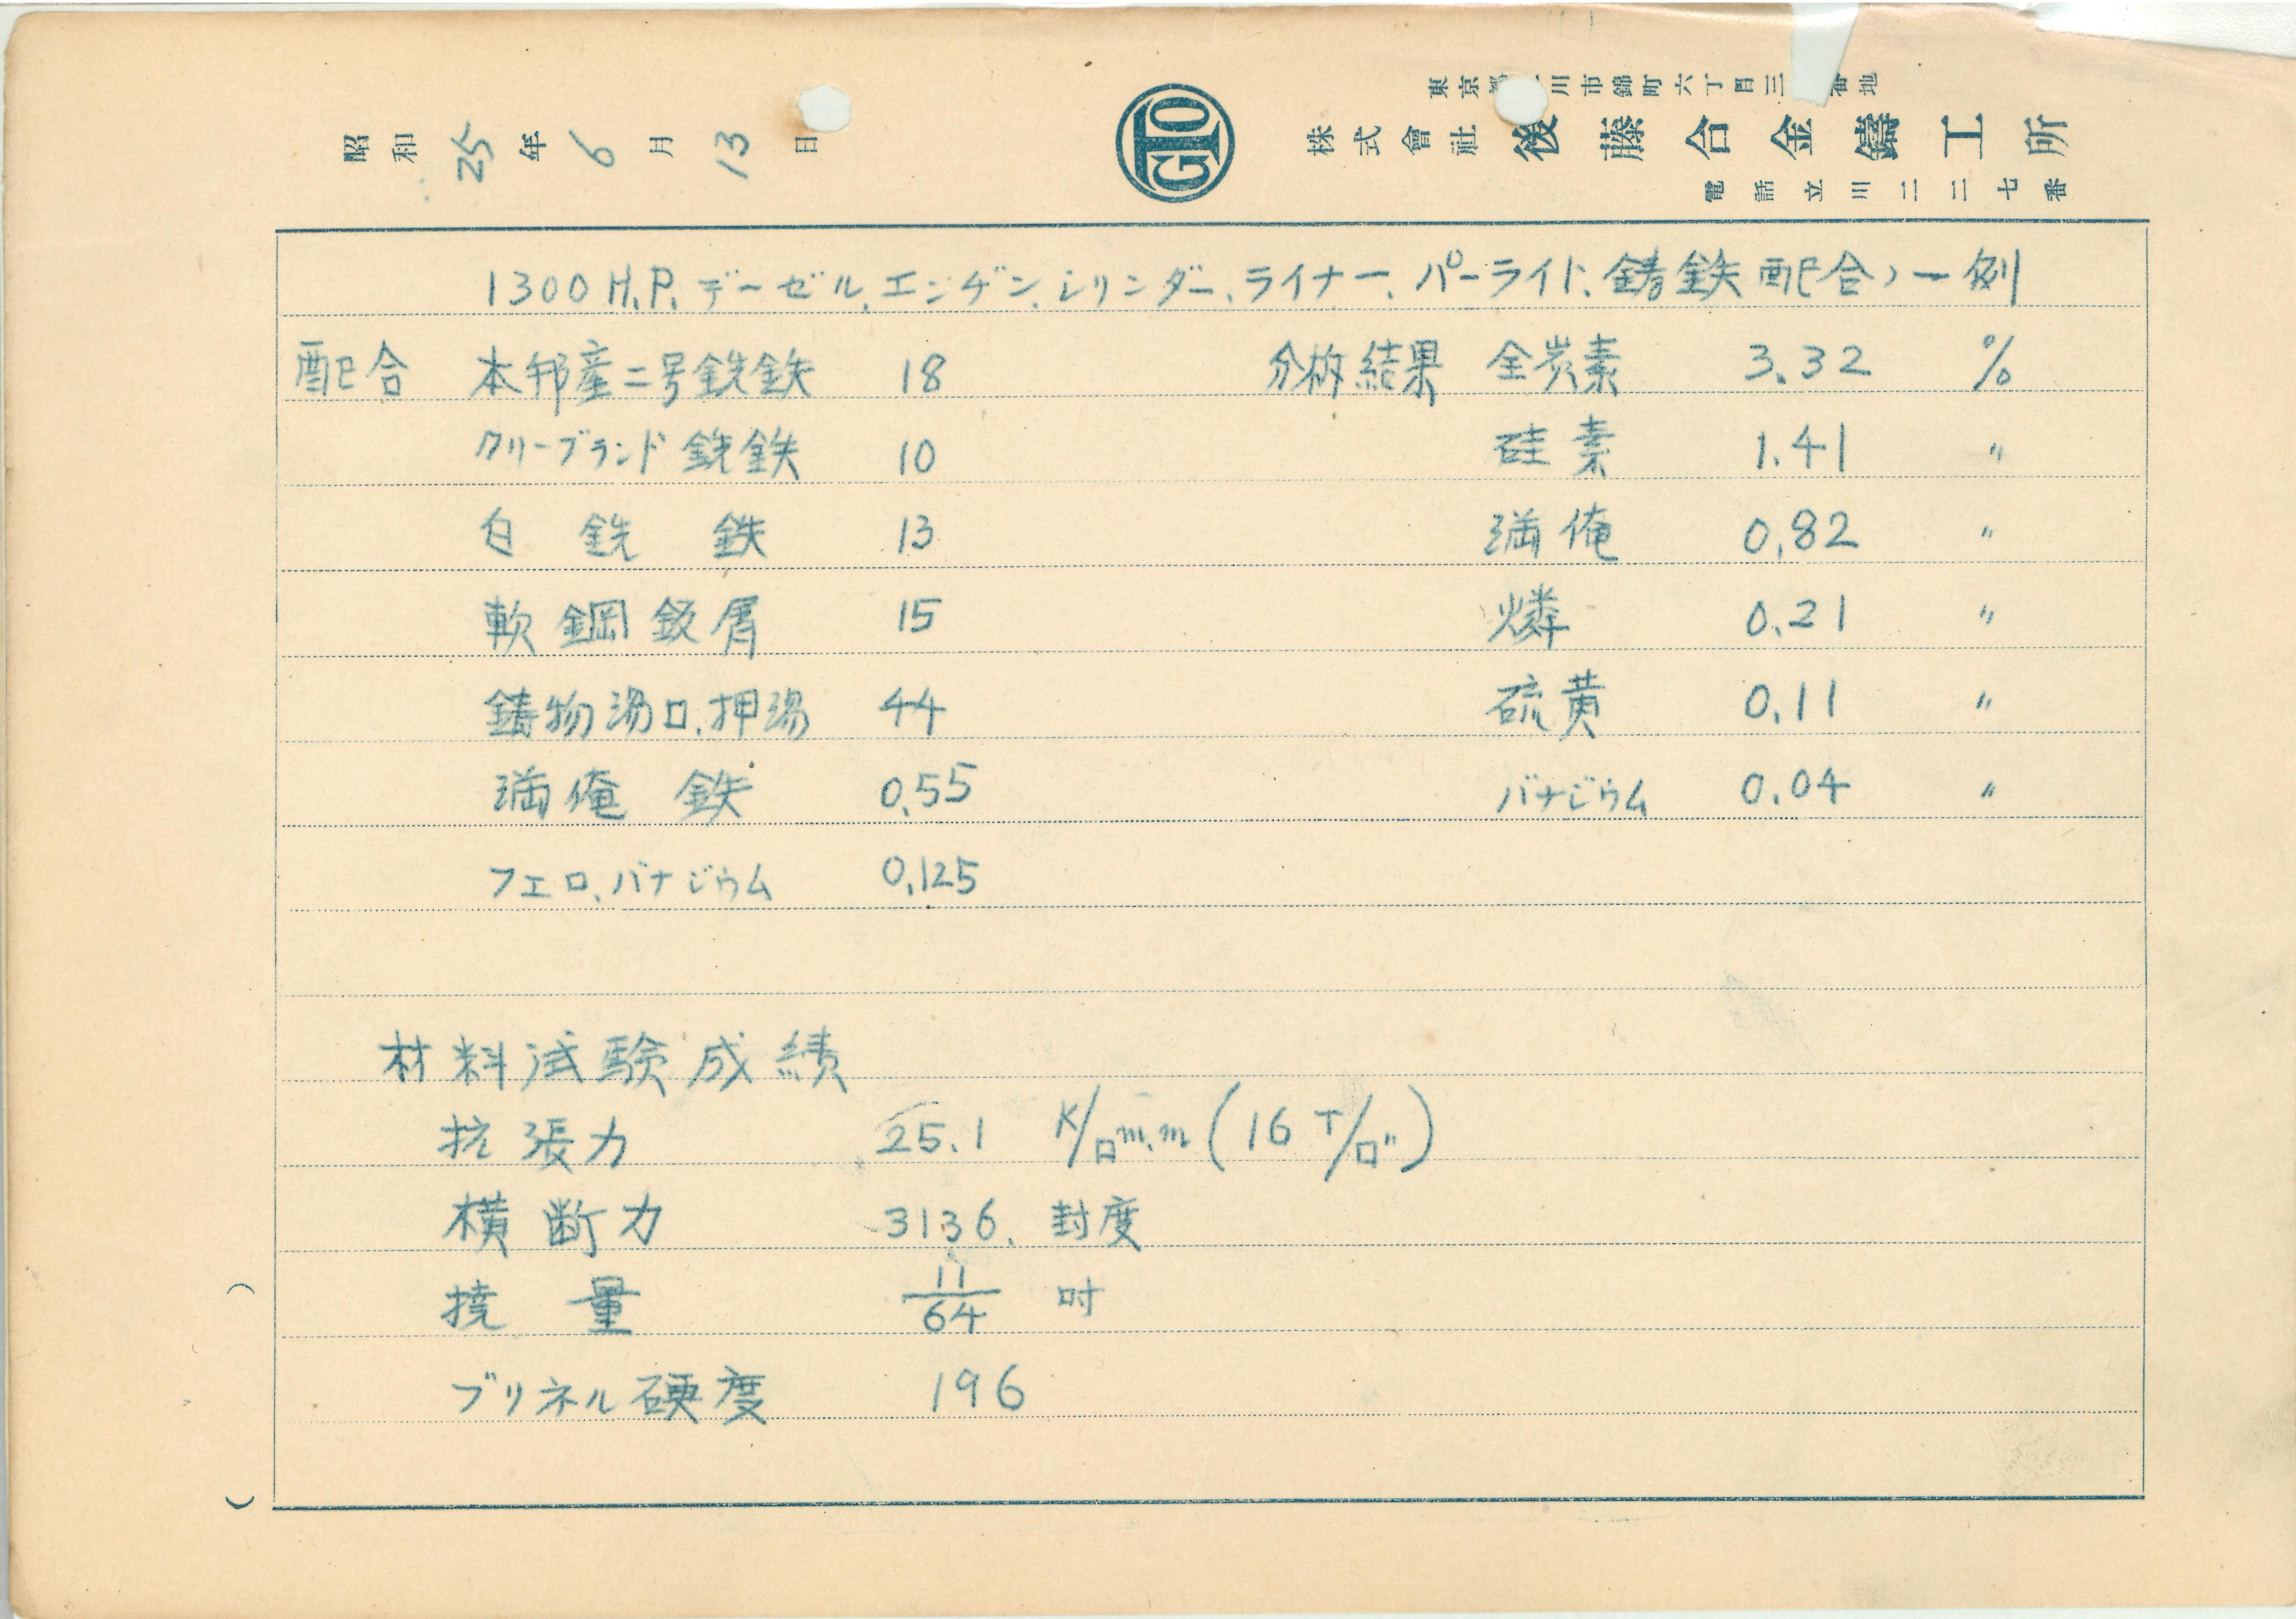 東京都 川市錦町六丁目三 番地
株式會社 後藤合金鑄工所
電話立川二二七番
GTO
昭和25年6月13日
1300 H.P. デーゼル.エンヂン.シリンダー.ライナー.パーライト.鋳鉄配合ノ一例
配合 本邦産二号銑鉄 18 分析結果 全炭素 3.32 %
クリーブランド銑鉄 10 硅素 1.41 〃
白銑鉄 13 満俺 0.82 〃
軟鋼鈑屑 15 燐 0.21 〃
鋳物湯口.押湯 44 硫黄 0.11 〃
満俺鉄 0.55 バナジウム 0.04 〃
フェロ.バナジウム 0.125
材料試験成績
抗張力 25.1 K/□m.m (16 T/□")
横断力 3136. 封度
撓量 11/64 吋
ブリネル硬度 196
( )